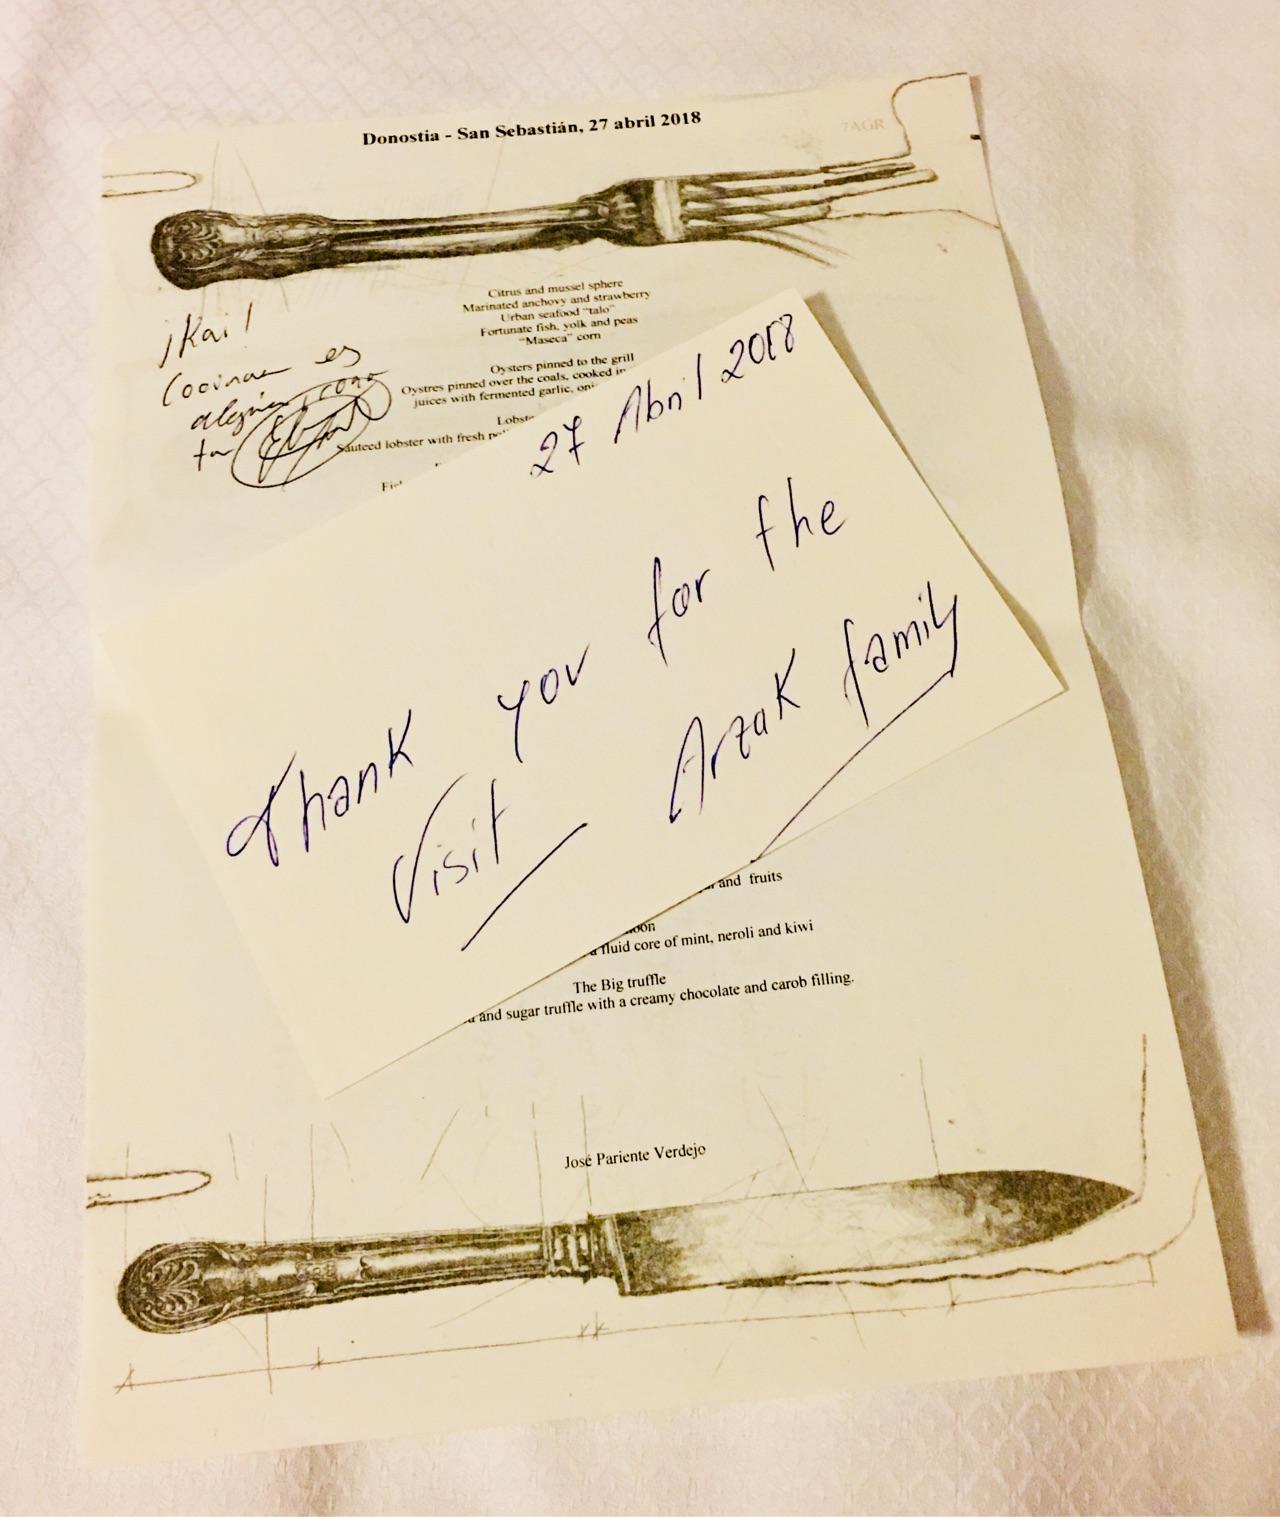 Donostia - San Sebastián, 27 abril 2018
7AGR
Citrus and mussel sphere
Marinated anchovy and strawberry
Urban seafood "talo"
Fortunate fish, yolk and peas
"Maseca" corn
Oysters pinned to the grill
Oystres pinned over the coals, cooked in
juices with fermented garlic,
Sauteed lobster with fresh
¡Kai!
Cocinar es
27 Abril 2018
Thank you for the
Visit Arzak family
and fruits
fluid core of mint, neroli and kiwi
The Big truffle
and sugar truffle with a creamy chocolate and carob filling.
José Pariente Verdejo